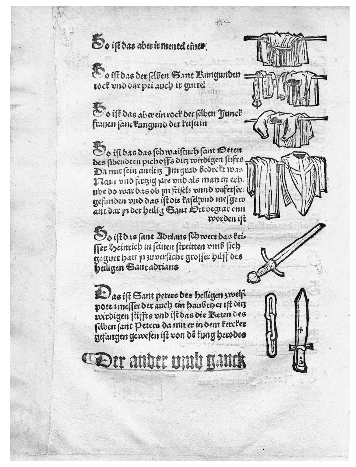 So ist das aber ir mentel einer.
So ist das der selben Sant Kungunden
rock vnd dar pei auch ir gurtel
So ist das aber ein rock der selben Junck
frauen sant kungund der keiserin
So ist das das schwaistuch sant Otten
des sibenden pischoffs diz wirdigen stifts
Da mit sein antlitz Im grab bedeckt was
vnd als man in erh
gefunden vnd das ist die kasel vnd mesgew
ant dar yn der heilig Sant Ott begraben
worden ist
So ist das sant Adrians schwert das kei
ser Heinrich in seinen streitten vmb sich
gegurt hatt zu zuversicht grosser hilf des
heiligen Sant adrians
Das ist Sant peters des heiligen zwelf
poten messer der auch ein haubtherr ist des
wirdigen stiffts vnd ist das die keten des
selben sant Peters da mit er in dem kercker
gefangen gewesen ist von dem kung herodes
Der ander vmb ganck